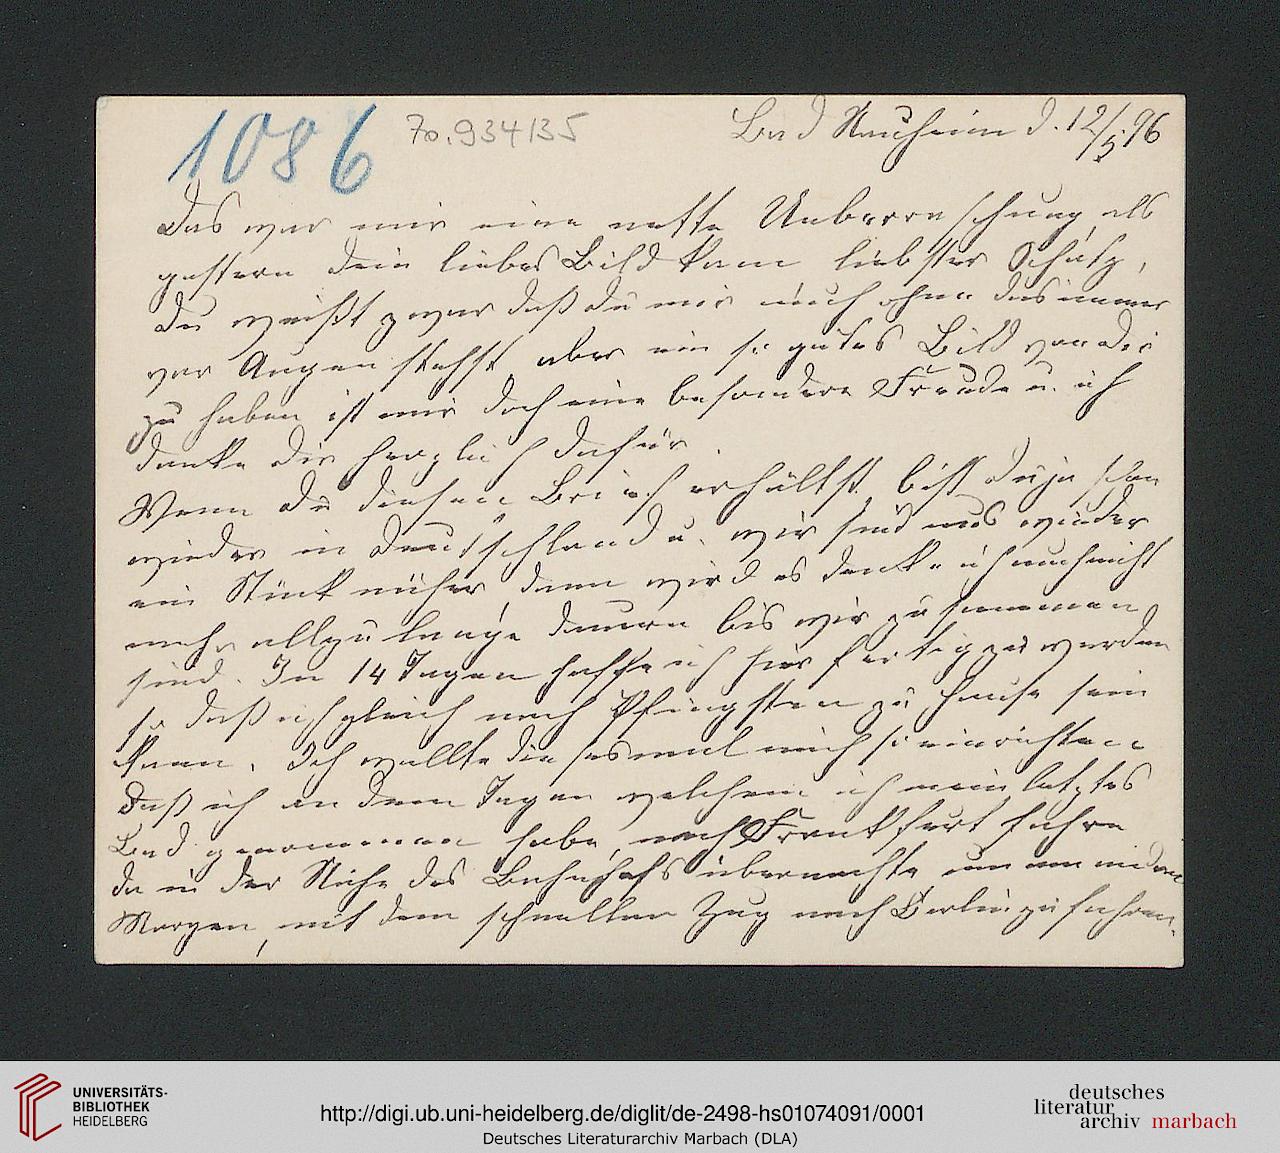 1086
70.934/35
Bad Nauheim d. 12/5.96
Das war mir eine nette Ueberraschung, als
gestern dein liebes Bild kam liebster Schatz,
Du weißt zwar daß du mir auch ohne das immer
vor Augen stehst, aber ein so gutes Bild von Dir
zu haben ist mir doch eine besondere Freude u. ich
danke Dir herzlich dafür.
Wenn Du diesen Brief erhältst, bist Du ja schon
wieder in Deutschland u. wir sind uns wieder
ein Stück näher, dann wird es denke ich auch nicht
mehr allzu lange dauern bis wir zusammen
sind. In 14 Tagen hoffe ich hier fertig zu werden
so daß ich gleich nach Pfingsten zu Hause sein
kann. Ich wollte diesesmal mich so einrichten
daß ich an dem Tage an welchem ich mein letztes
Bad genommen habe, nach Frankfurt fahre
da in der Nähe des Bahnhofs übernachte um am andern
Morgen, mit dem schnellen Zug nach Berlin zu fahren.
UNIVERSITÄTS-
BIBLIOTHEK
HEIDELBERG
http://digi.ub.uni-heidelberg.de/diglit/de-2498-hs01074091/0001
Deutsches Literaturarchiv Marbach (DLA)
deutsches
literatur
archiv marbach